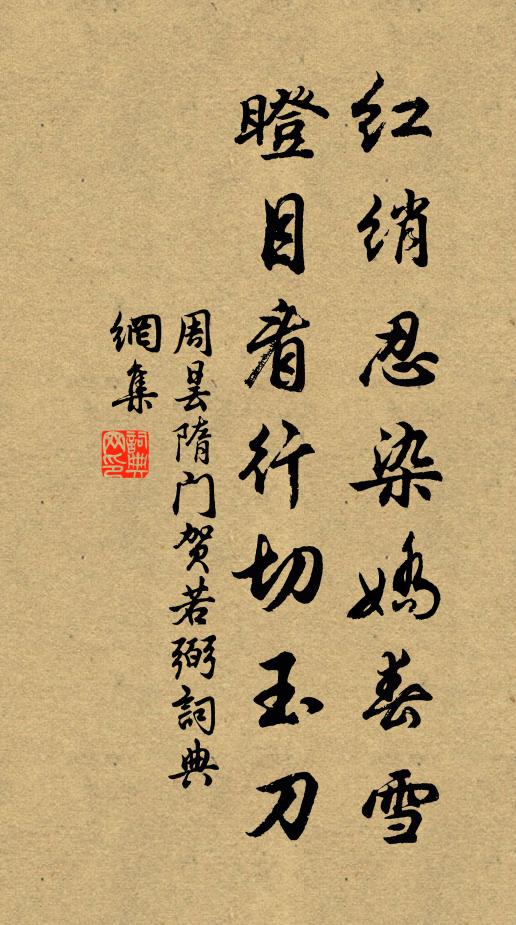 红绡忍染嬌春雪
瞪目看行切玉刀
周昙隋门贺若弼詞典
網集
詞典网印